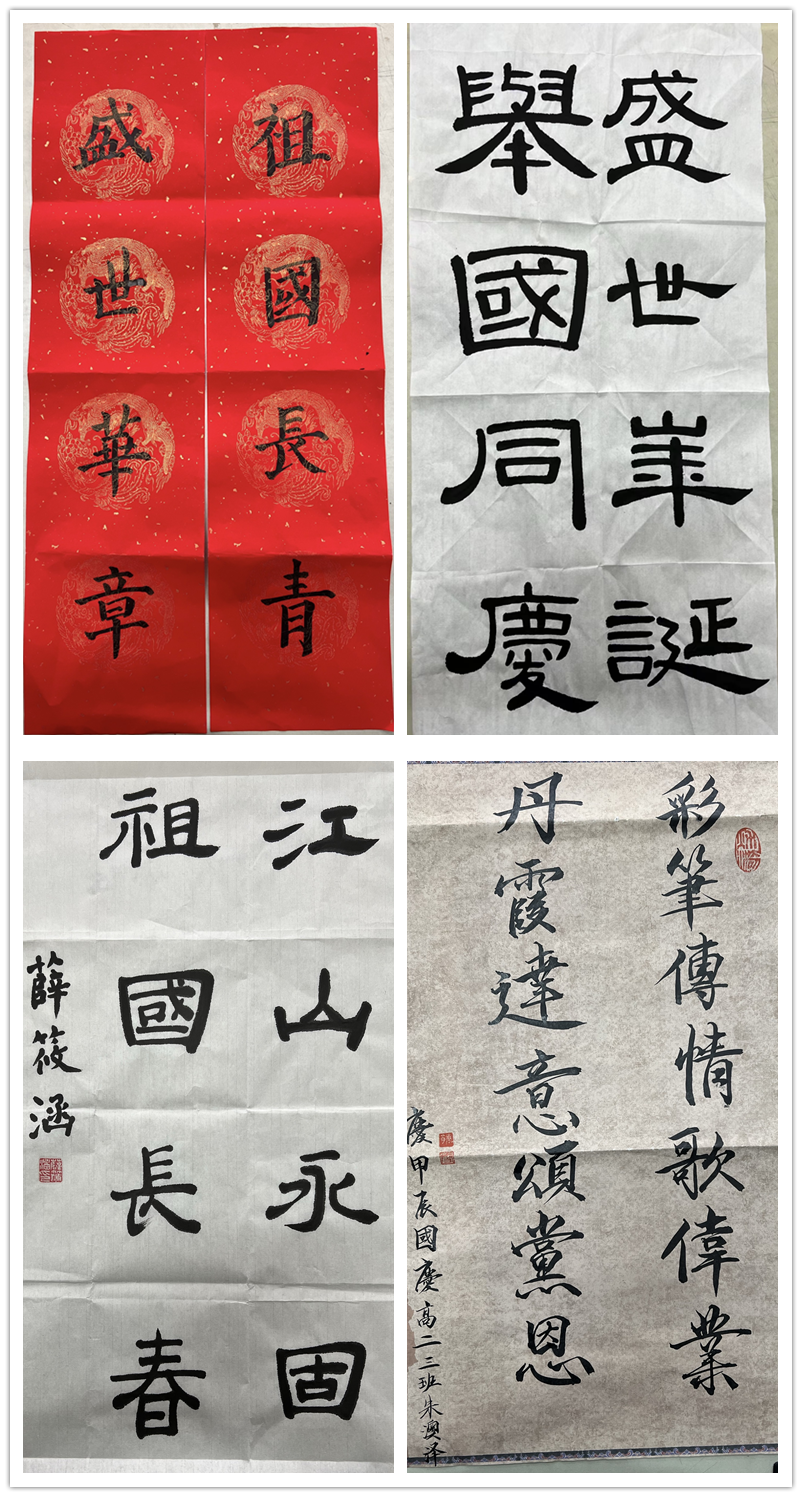 祖國長青
盛世華章
盛世崋誕
舉國同慶
江山永固
祖國長春
薛筱涵
彩筆傳情歌偉業
丹霞達意頌黨恩
慶甲辰國慶高二三班朱